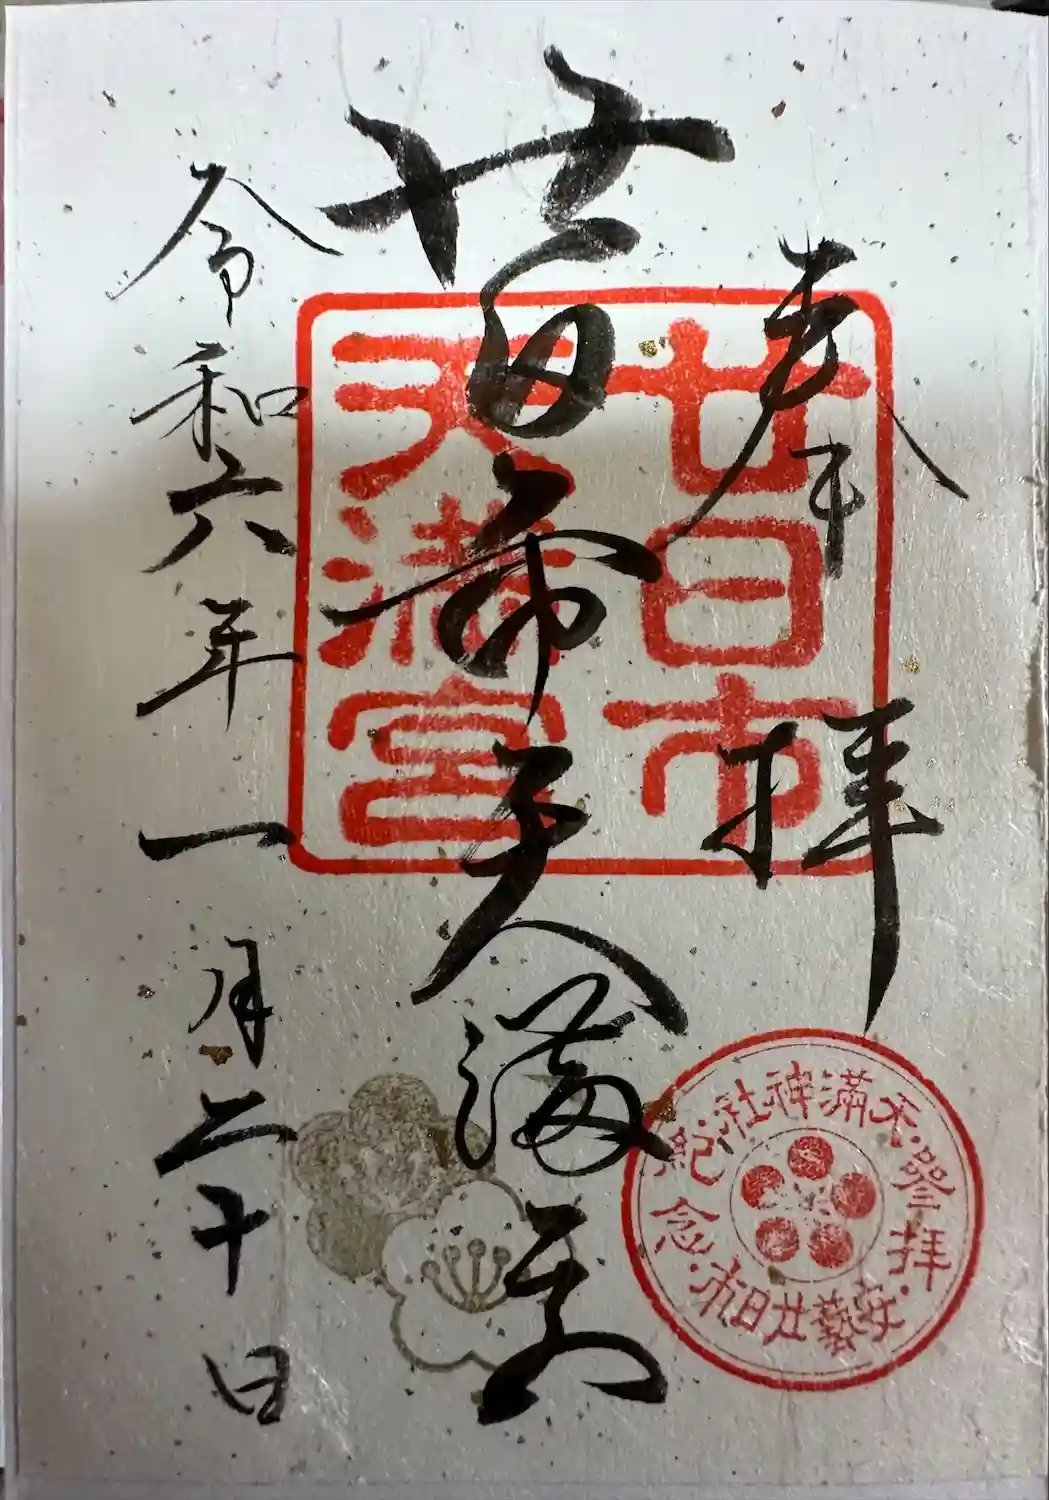 奉拝
廿日市天満宮
令和六年一月二十日
廿日市
天満宮
天満神社
参拝
紀念
安藝廿日市